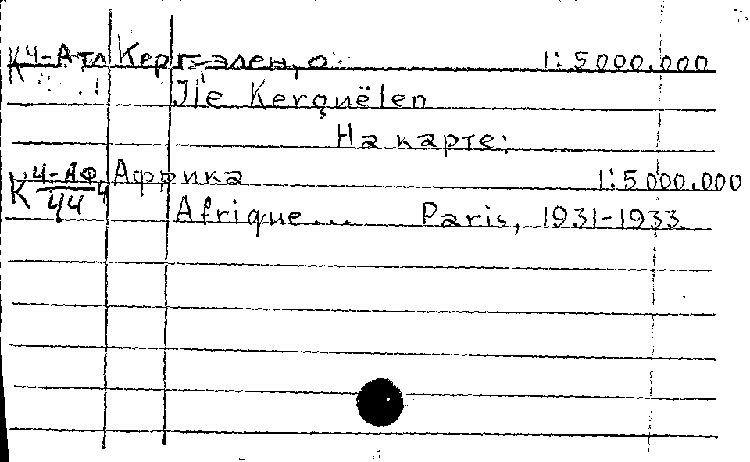 К4-Атл Кергелен, о. 1:5000.000
Ile Kerguëlen
На карте:
К 4-Аф Африка 1:5000.000
44 Afrique... Paris, 1931-1933